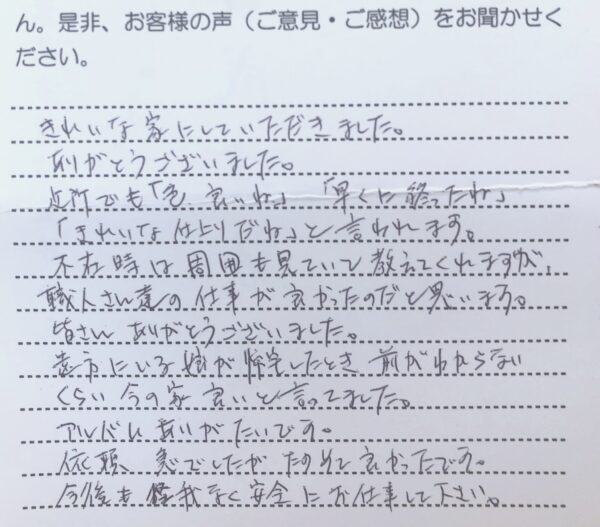 ん。是非、お客様の声（ご意見・ご感想）をお聞かせく
ださい。
きれいな家にしていただきました。
ありがとうございました。
近所でも「色、良いね」「早くに終ったね」
「きれいな仕上りだね」と言われます。
不在時は周囲も見ていて教えてくれますが、
職人さん達の仕事が良かったのだと思います。
皆さんありがとうございました。
市にいる娘が帰宅したとき前がわからない
くらい今の家良いと言ってました。
ありがたいです。
依頼、急でしたがたのめて良かったです。
今後も怪我なく安全にお仕事して下さい。